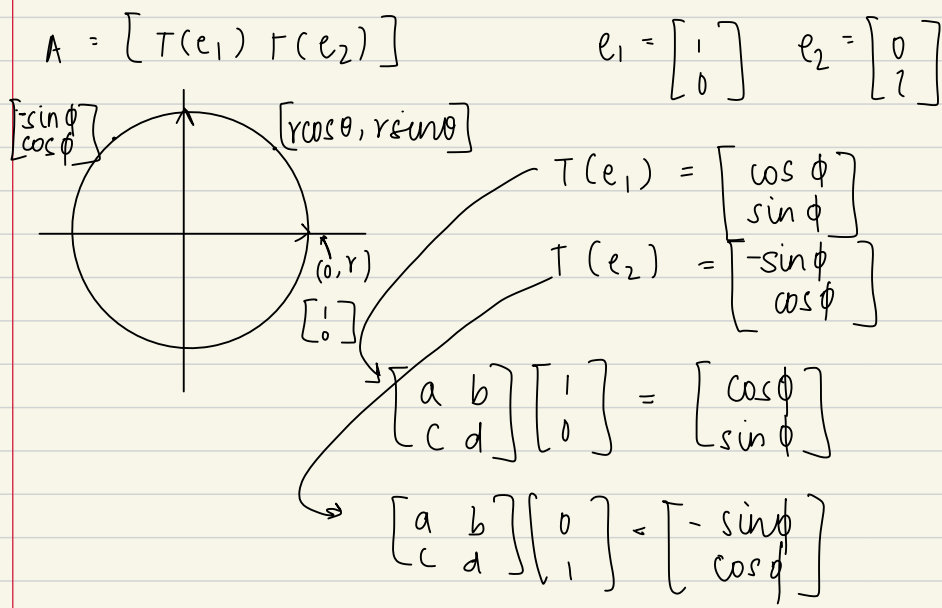 A = [ T(e₁) T(e₂) ]
e₁ = [ 1
0 ]
e₂ = [ 0
? ]
[ -sinϕ
cosϕ ]
[rcosθ, rsinθ]
T(e₁) = [ cos ϕ
sin ϕ ]
(0,r)
[ 1
0 ]
T(e₂) = [ -sinϕ
cosϕ ]
[ a b
c d ] [ 1
0 ] = [ cosϕ
sinϕ ]
[ a b
c d ] [ 0
1 ] = [ - sinϕ
cosϕ ]